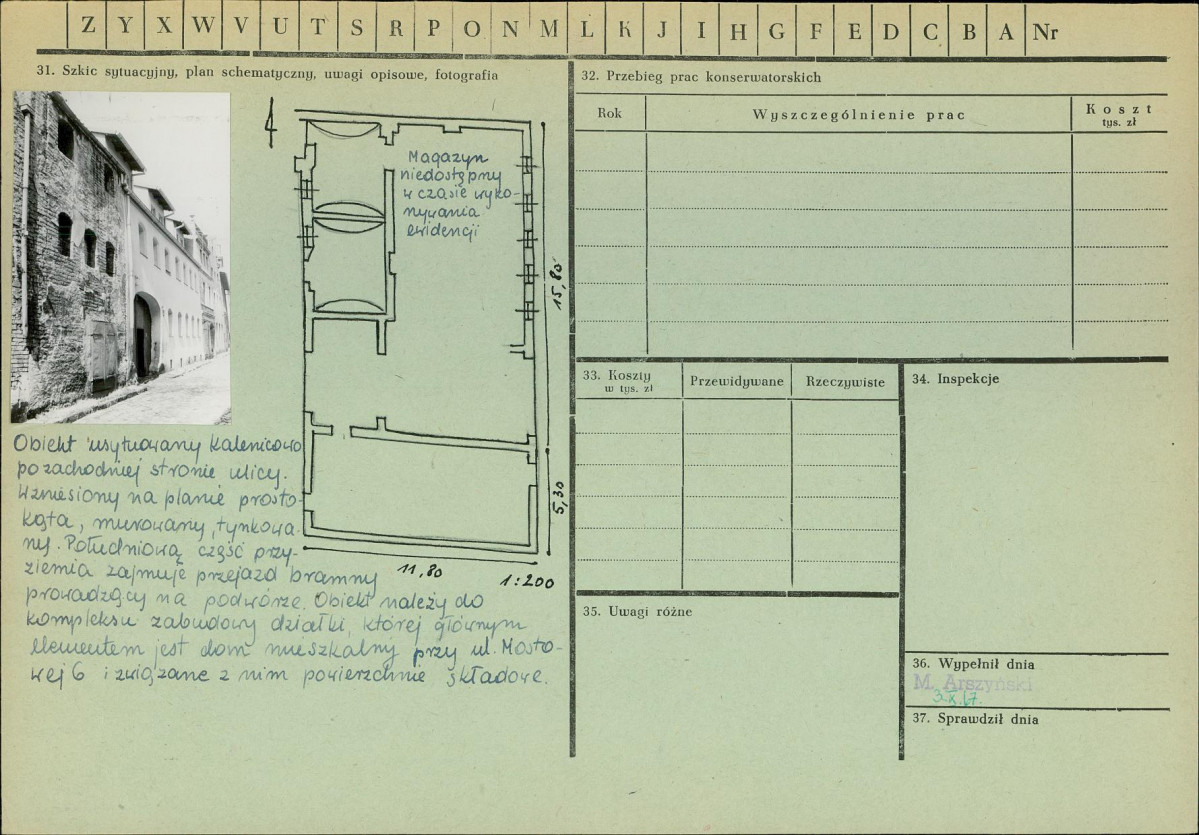 Z Y X W V U T S R P O N M L K J I H G F E D C B A Nr
31. Szkic sytuacyjny, plan schematyczny, uwagi opisowe, fotografia
Magazyn
niedostępny
w czasie wyko-
nywania
ewidencji
15,80
5,30
11,80
1:200
Obiekt usytuowany kalenicowo
po zachodniej stronie ulicy.
Wzniesiony na planie prosto-
kąta, murowany, tynkowa-
ny. Południową część przy-
ziemia zajmuje przejazd bramny
prowadzący na podwórze. Obiekt należy do
kompleksu zabudowy działki, której głównym
elementem jest dom mieszkalny przy ul. Mosto-
wej 6 i związane z nim powierzchnie składowe.
32. Przebieg prac konserwatorskich
Rok
Wyszczególnienie prac
Koszt
tys. zł
33. Koszty
w tys. zł
Przewidywane
Rzeczywiste
34. Inspekcje
35. Uwagi różne
36. Wypełnił dnia
M. Arszyński
3.X.67.
37. Sprawdził dnia